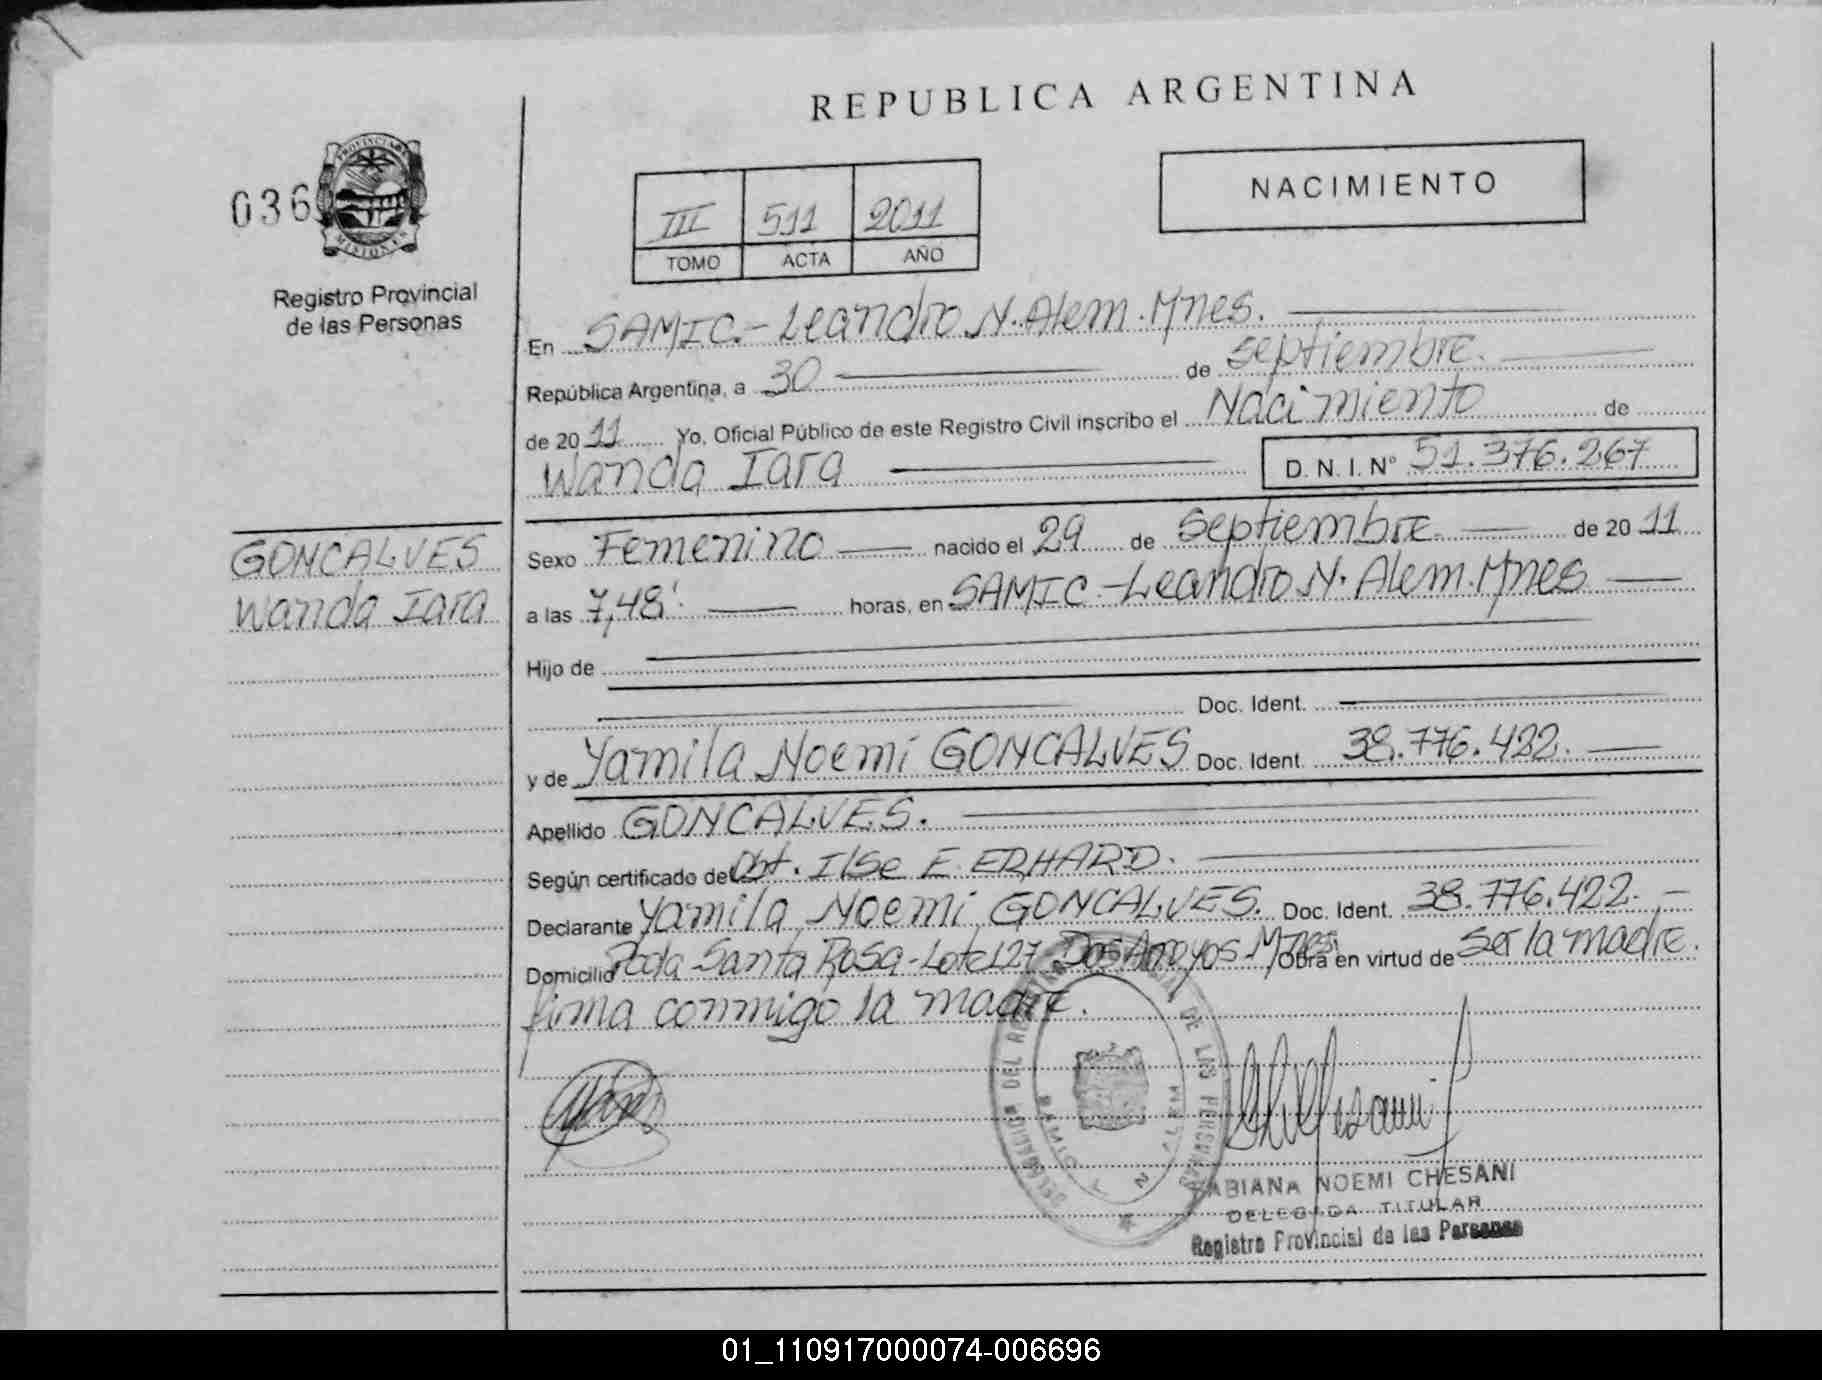 REPUBLICA ARGENTINA
036
PROVINCIA DE
MISIONES
Registro Provincial
de las Personas
III 511 2011
TOMO ACTA AÑO
NACIMIENTO
En SAMIC.-Leandro N. Alem. Mnes.
República Argentina, a 30 de septiembre.
de 2011 Yo, Oficial Público de este Registro Civil inscribo el Nacimiento de
Wanda Iara D. N. I. N° 51.376.267
GONCALVES
Wanda Iara
Sexo Femenino nacido el 29 de Septiembre. de 2011
a las 7,48'. horas, en SAMIC.-Leandro N. Alem. Mnes
Hijo de
Doc. Ident.
y de Yamila Noemi GONCALVES Doc. Ident. 38.776.422.
Apellido GONCALVES.
Según certificado del Obt. Ilse E. ERHARD.
Declarante Yamila Noemi GONCALVES. Doc. Ident. 38.776.422.
Domicilio Pcda Santa Rosa-Lote 127 Dos Arroyos Mnes. Obra en virtud de ser la madre.
firma conmigo la madre.
FABIANA NOEMI CHESANI
DELEGADA TITULAR
Registro Provincial de las Personas
01_110917000074-006696